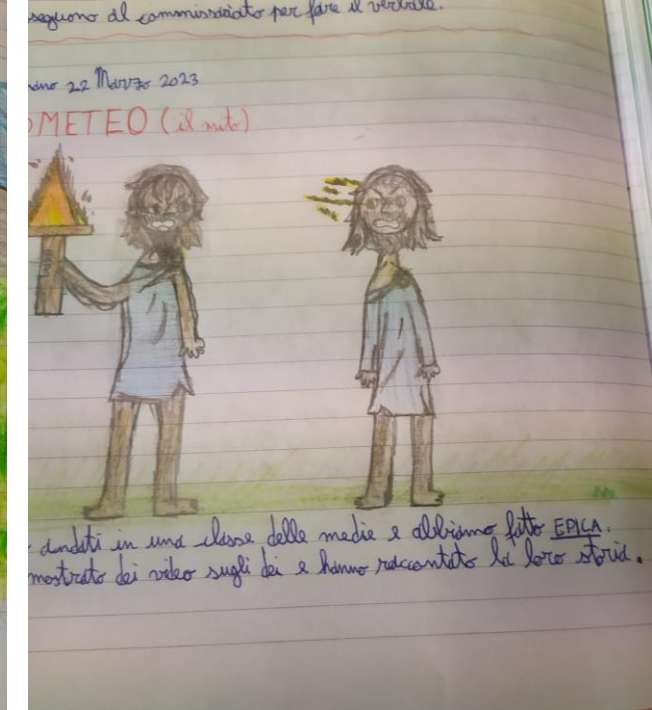 seguono al commissariato per fare il verbale.
22 Marzo 2023
OMETEO (il mito)
andati in una classe delle medie e abbiamo fatto EPICA.
mostrato dei video sugli dei e hanno raccontato la loro storia.